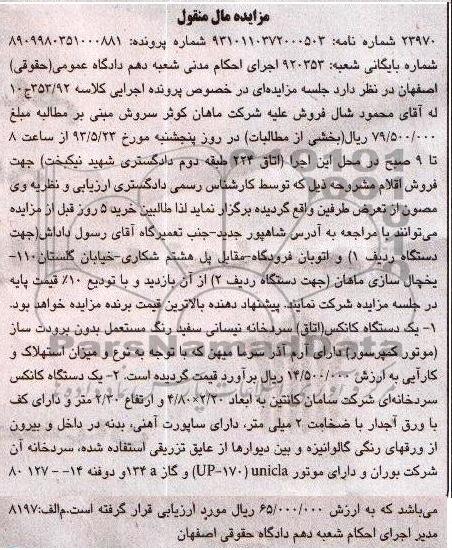 مزایده مال منقول
۲۳۹۷۰ شماره نامه: ۹۳۱۰۱۱۰۳۷۲۰۰۰۵۰۳ شماره پرونده: ۸۹۰۹۹۸۰۳۵۱۰۰۰۸۸۱
شماره بایگانی شعبه: ۹۲۰۳۵۳ اجرای احکام مدنی شعبه دهم دادگاه عمومی(حقوقی)
اصفهان در نظر دارد جلسه مزایده‌ای در خصوص پرونده اجرایی کلاسه ۳۵۳/۹۲ج۱۰
له آقای محمود شال فروش علیه شرکت ماهان کوثر سروش مبنی بر مطالبه مبلغ
۷۹/۵۰۰/۰۰۰ ریال(بخشی از مطالبات) در روز پنجشنبه مورخ ۹۳/۵/۲۳ از ساعت ۸
تا ۹ صبح در محل این اجرا (اتاق ۲۲۴ طبقه دوم دادگستری شهید نیکبخت) جهت
فروش اقلام مشروحه ذیل که توسط کارشناس رسمی دادگستری ارزیابی و نظریه وی
مصون از تعرض طرفین واقع گردیده برگزار نماید لذا طالبین خرید ۵ روز قبل از مزایده
می‌توانند با مراجعه به آدرس شاهپور جدید-جنب تعمیرگاه آقای رسول باداش(جهت
دستگاه ردیف ۱) و اتوبان فرودگاه-مقابل پل هشتم شکاری-خیابان گلستان۱۱۰-
یخچال سازی ماهان (جهت دستگاه ردیف ۲) از آن بازدید و با تودیع ۱۰٪ قیمت پایه
در جلسه مزایده شرکت نمایند. پیشنهاد دهنده بالاترین قیمت برنده مزایده خواهد بود.
۱- یک دستگاه کانکس(اتاق) سردخانه نیسانی سفید رنگ مستعمل بدون برودت ساز
(موتور کمپرسور) دارای آرم آذر سرما میهن که با توجه به نوع و میزان استهلاک و
کارآیی به ارزش ۱۴/۵۰۰/۰۰۰ ریال برآورد قیمت گردیده است. ۲- یک دستگاه کانکس
سردخانه‌ای شرکت سامان کانتین به ابعاد ۲/۲۰×۴/۸۰ و ارتفاع ۲/۳۰ متر و دارای کف
با ورق آجدار با ضخامت ۲ میلی متر، دارای ساپورت آهنی، بدنه در داخل و بیرون از
ورقهای رنگی گالوانیزه و بین دیوارها از عایق تزریقی استفاده شده، سردخانه آن
شرکت بوران و دارای موتور unicla (UP-۱۷۰) و گاز ۱۳۴a و دوفنه ۱۴-- ۱۲۷ - ۸۰
می‌باشد که به ارزش ۶۵/۰۰۰/۰۰۰ ریال مورد ارزیابی قرار گرفته است.م‌الف:۸۱۹۷
مدیر اجرای احکام شعبه دهم دادگاه حقوقی اصفهان
ParsNamadData